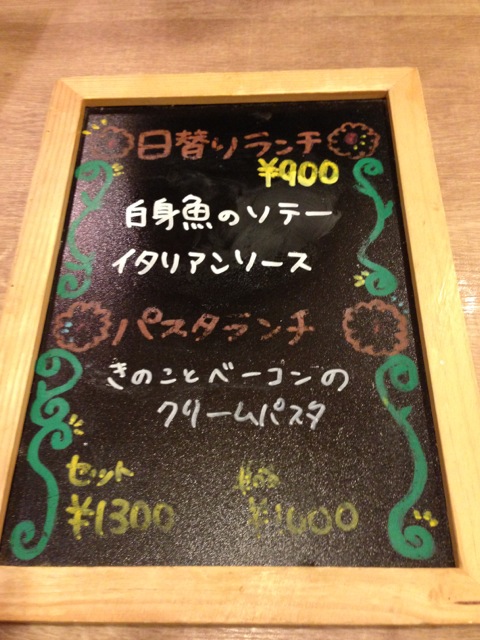 日替りランチ
¥900
白身魚のソテー
イタリアンソース
パスタランチ
きのことベーコンの
クリームパスタ
セット
¥1300